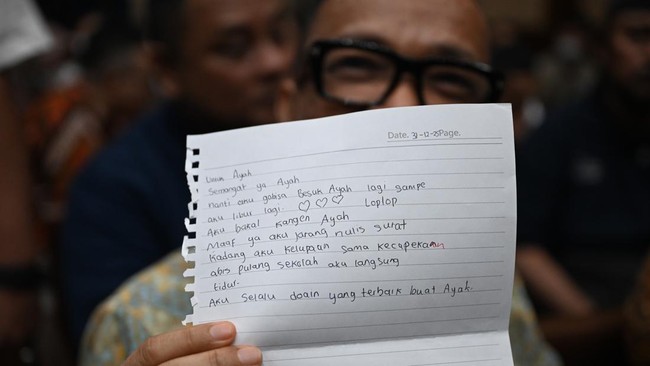 Date. 31-12-25 Page.
Untuk Ayah
Semangat ya Ayah
nanti aku gabisa Besuk Ayah lagi sampe
aku libur lagi. ♡♡♡ Loplop
Aku bakal kangen Ayah
Maaf ya aku jarang nulis surat
kadang aku kelupaan sama kecapekan
abis pulang sekolah aku langsung
tidur.
Aku selalu doain yang terbaik buat Ayah.